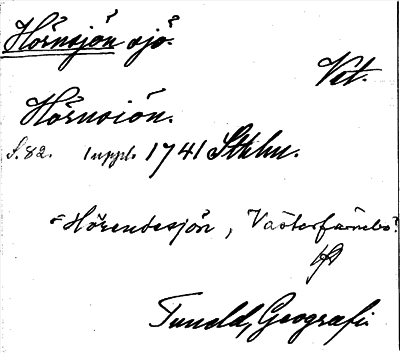 Hörnsjön sjö.
Vet.
Hörnsiön.
S. 82. 1 uppl. 1741 Sthlm.
= Hörendesjön, Västerfärnebo?
Tuneld, Geografi